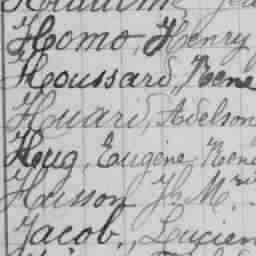 Homo, Henry
Houssard, Rene
Huard, Adelson
Hug, Eugène, René
Husson J. M.
Jacob, Lucien